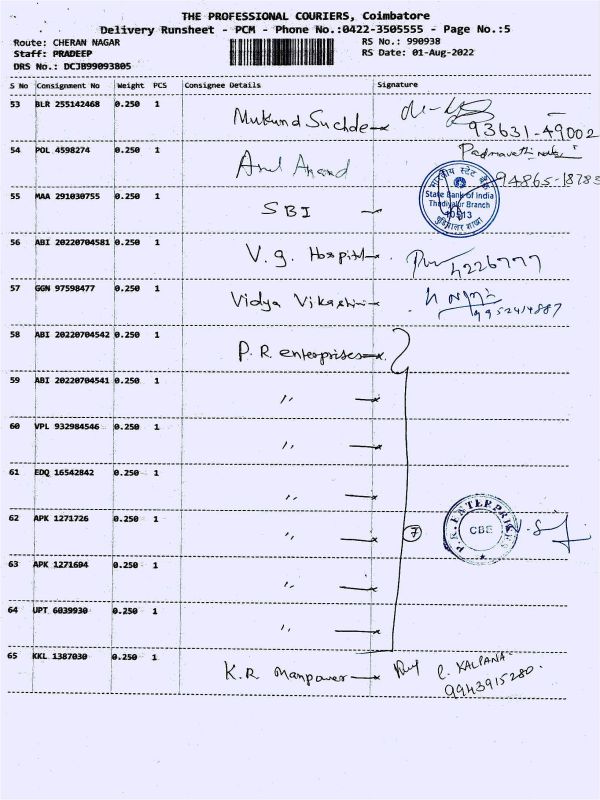 THE PROFESSIONAL COURIERS, Coimbatore
Delivery Runsheet - PCM - Phone No.:0422-3505555 - Page No.:5
Route: CHERAN NAGAR
RS No.: 990938
Staff: PRADEEP
RS Date: 01-Aug-2022
DRS No.: DCJB99093805
S No Consignment No Weight PCS Consignee Details Signature
53 BLR 255142468 0.250 1 Mukund Suchde
93631-49002
54 POL 4598274 0.250 1 Arul Anand
94865-18783
55 MAA 291030755 0.250 1 SBI
भारतीय स्टेट बैंक
State Bank of India
Thudiyalur Branch
10513
56 ABI 20220704581 0.250 1 V.g. Hospital
4226777
57 GGN 97598477 0.250 1 Vidya Vikashini
9952414887
58 ABI 20220704542 0.250 1 P.R. enterprises
59 ABI 20220704541 0.250 1 "
60 VPL 932984546 0.250 1 "
61 EDQ 16542842 0.250 1 "
62 APK 1271726 0.250 1 " 7
P.R. ENTERPRISES
CBE
63 APK 1271694 0.250 1 "
64 UPT 6039930 0.250 1 "
65 KKL 1387030 0.250 1 K.R. Manpower
C. KALPANA
9943915280.